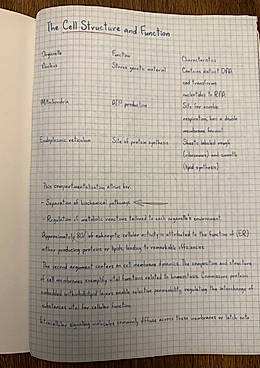 The Cell Structure and Function
Organelle Function Characteristics
Nucleus Stores genetic material Contains distinct DNA
and transforms
nucleotides to RNA
Mitochondria ATP production Site for aerobic
respiration, has a double
membrane
Endoplasmic reticulum Site of protein synthesis Sheets labeled rough
(ribosomes) and smooth
(lipid synthesis)
This compartmentalization allows for:
- Separation of biochemical pathways
- Regulation of metabolic reactions tailored to each organelle's environment
Approximately 80% of eukaryotic cellular activity is attributed to the function of (ER)
either producing proteins or lipids, leading to remarkable efficiencies.
The second argument centers on cell membrane dynamics. The composition and structure
of cell membranes exemplify vital functions related to homeostasis. proteins
embedded within bilayers enable selective permeability, regulating the interchange of
substances vital for cellular function.
signaling molecules commonly diffuse across these membranes or latch onto